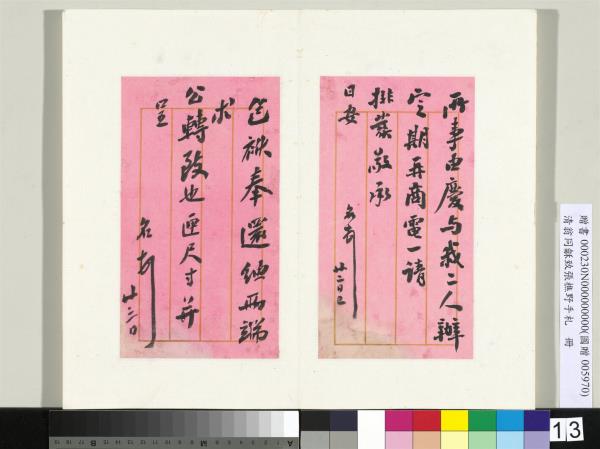 事由慶与我二人辦
定期再商電一請
排敬承
日安
廿二日
包袱奉還兩端
求
公轉致也匣尺寸并
呈
廿三日
贈書 000230N000000000(國贈 005970)
清翁同龢致張樵野手札 冊
13